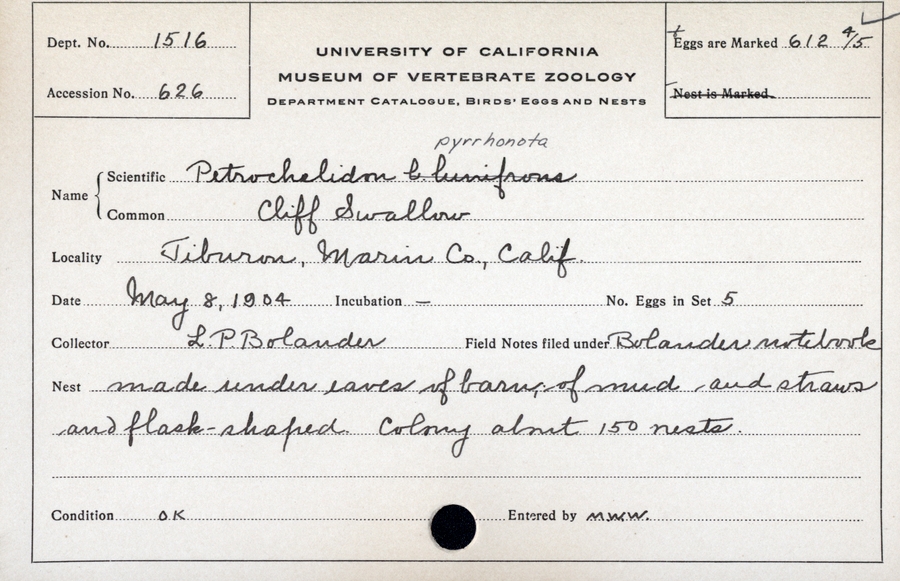 Dept. No. 1516
Accession No. 626
UNIVERSITY OF CALIFORNIA
MUSEUM OF VERTEBRATE ZOOLOGY
DEPARTMENT CATALOGUE, BIRDS' EGGS AND NESTS
Eggs are Marked 612 4/5
Nest is Marked
pyrrhonota
Name
Scientific Petrochelidon l. lunifrons
Common Cliff Swallow
Locality Tiburon, Marin Co., Calif.
Date May 8, 1904 Incubation — No. Eggs in Set 5
Collector L.P. Bolander Field Notes filed under Bolander notebook
Nest made under eaves of barn; of mud and straws
and flask-shaped. Colony about 150 nests.
Condition OK Entered by M.W.W.